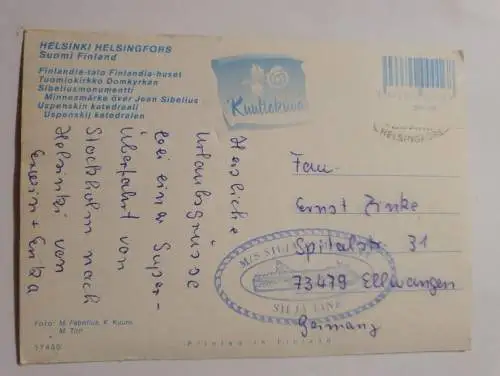 HELSINKI HELSINGFORS
Suomi Finland
Finlandia-talo Finlandia-huset
Tuomiokirkko Domkyrkan
Sibeliusmonumentti
Minnesmärke över Jean Sibelius
Uspenskin katedraali
Uspenskij katedralen
Herzliche
Urlaubsgrüsse
bei einer Super-
Überfahrt von
Stockholm nach
Helsinki von
Erwin +
Foto: M. Fabelius, K. Kuure,
17450
Printed in Finland
HELSINGFORS
Fam.
Ernst Zinke
Spitalstr. 31
73479 Ellwangen
Germany
M/S SILJA
SILJA LINE